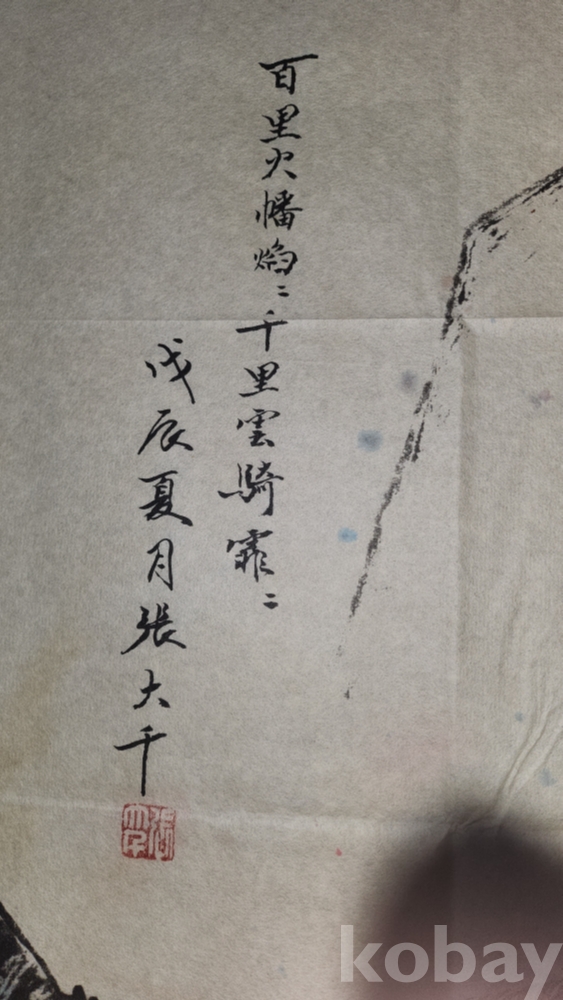 百里火幡焰〻千里雲騎霏〻
戊辰夏月張大千
kobay